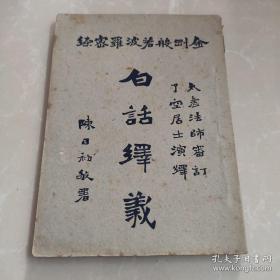 金剛般若波羅密經
太虛法師審訂
了空居士演繹
白話繹義
陳日初敬署
孔夫子旧书网